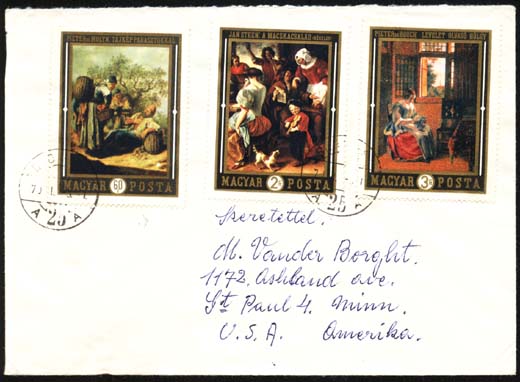 PIETER DE MOLYN TÁJKÉP PARASZTOKKAL
JAN STEEN: A MACSKACSALÁD
PIETER DE HOOCH LEVELET OLVASÓ HÖLGY
MAGYAR 60 POSTA
MAGYAR 2 POSTA
MAGYAR 3 POSTA
25
A A
25
A A
Szeretettel.
M. Vander Borght.
1172. Ashland ave.
St Paul 4. Minn.
U.S.A. Amerika.